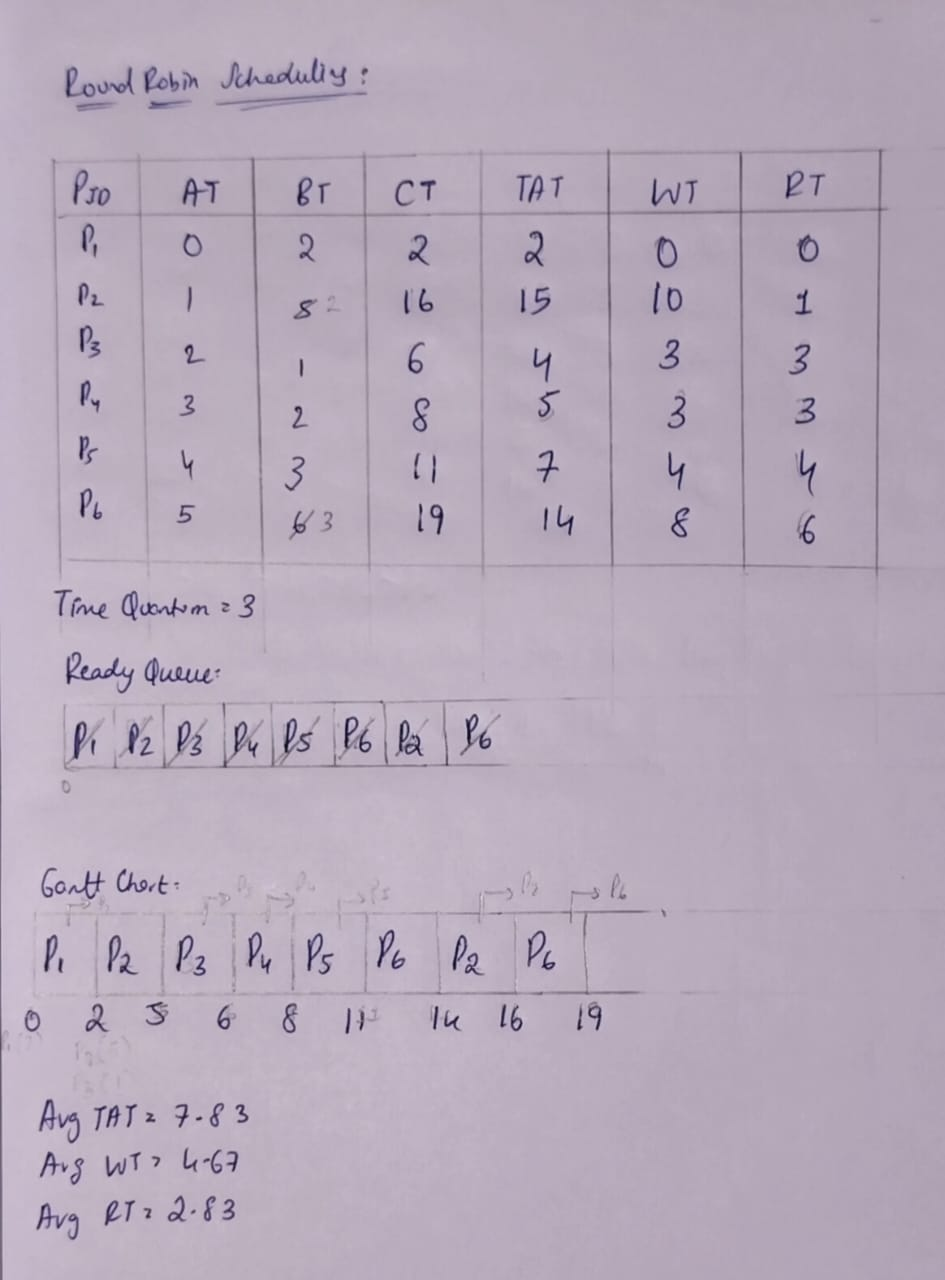 Round Robin Scheduling:
PID AT BT CT TAT WT RT
P1 0 2 2 2 0 0
P2 1 5 2 16 15 10 1
P3 2 1 6 4 3 3
P4 3 2 8 5 3 3
P5 4 3 11 7 4 4
P6 5 6 3 19 14 8 6
Time Quantum = 3
Ready Queue:
P1 P2 P3 P4 P5 P6 P2 P6
0
Gantt Chart:
P3 P4 P5 P2 P6
P1 P2 P3 P4 P5 P6 P2 P6
0 2 5 6 8 11 14 16 19
Avg TAT = 7.83
Avg WT = 4.67
Avg RT = 2.83